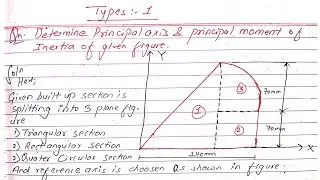 Types:- 1
Qn. Determine Principal axis & principal moment of
Inertia of given figure.
Soln
Here,
Given built up section is
splitting into 3 plane fig-
ure
1) Triangular section
2) Rectangular section
3) Quater Circular section
And reference axis is choosen as shown in figure.
Y
X
1
2
3
70mm
70mm
140mm